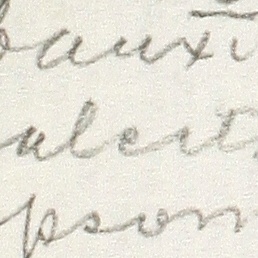 bauxi
alcit
psom